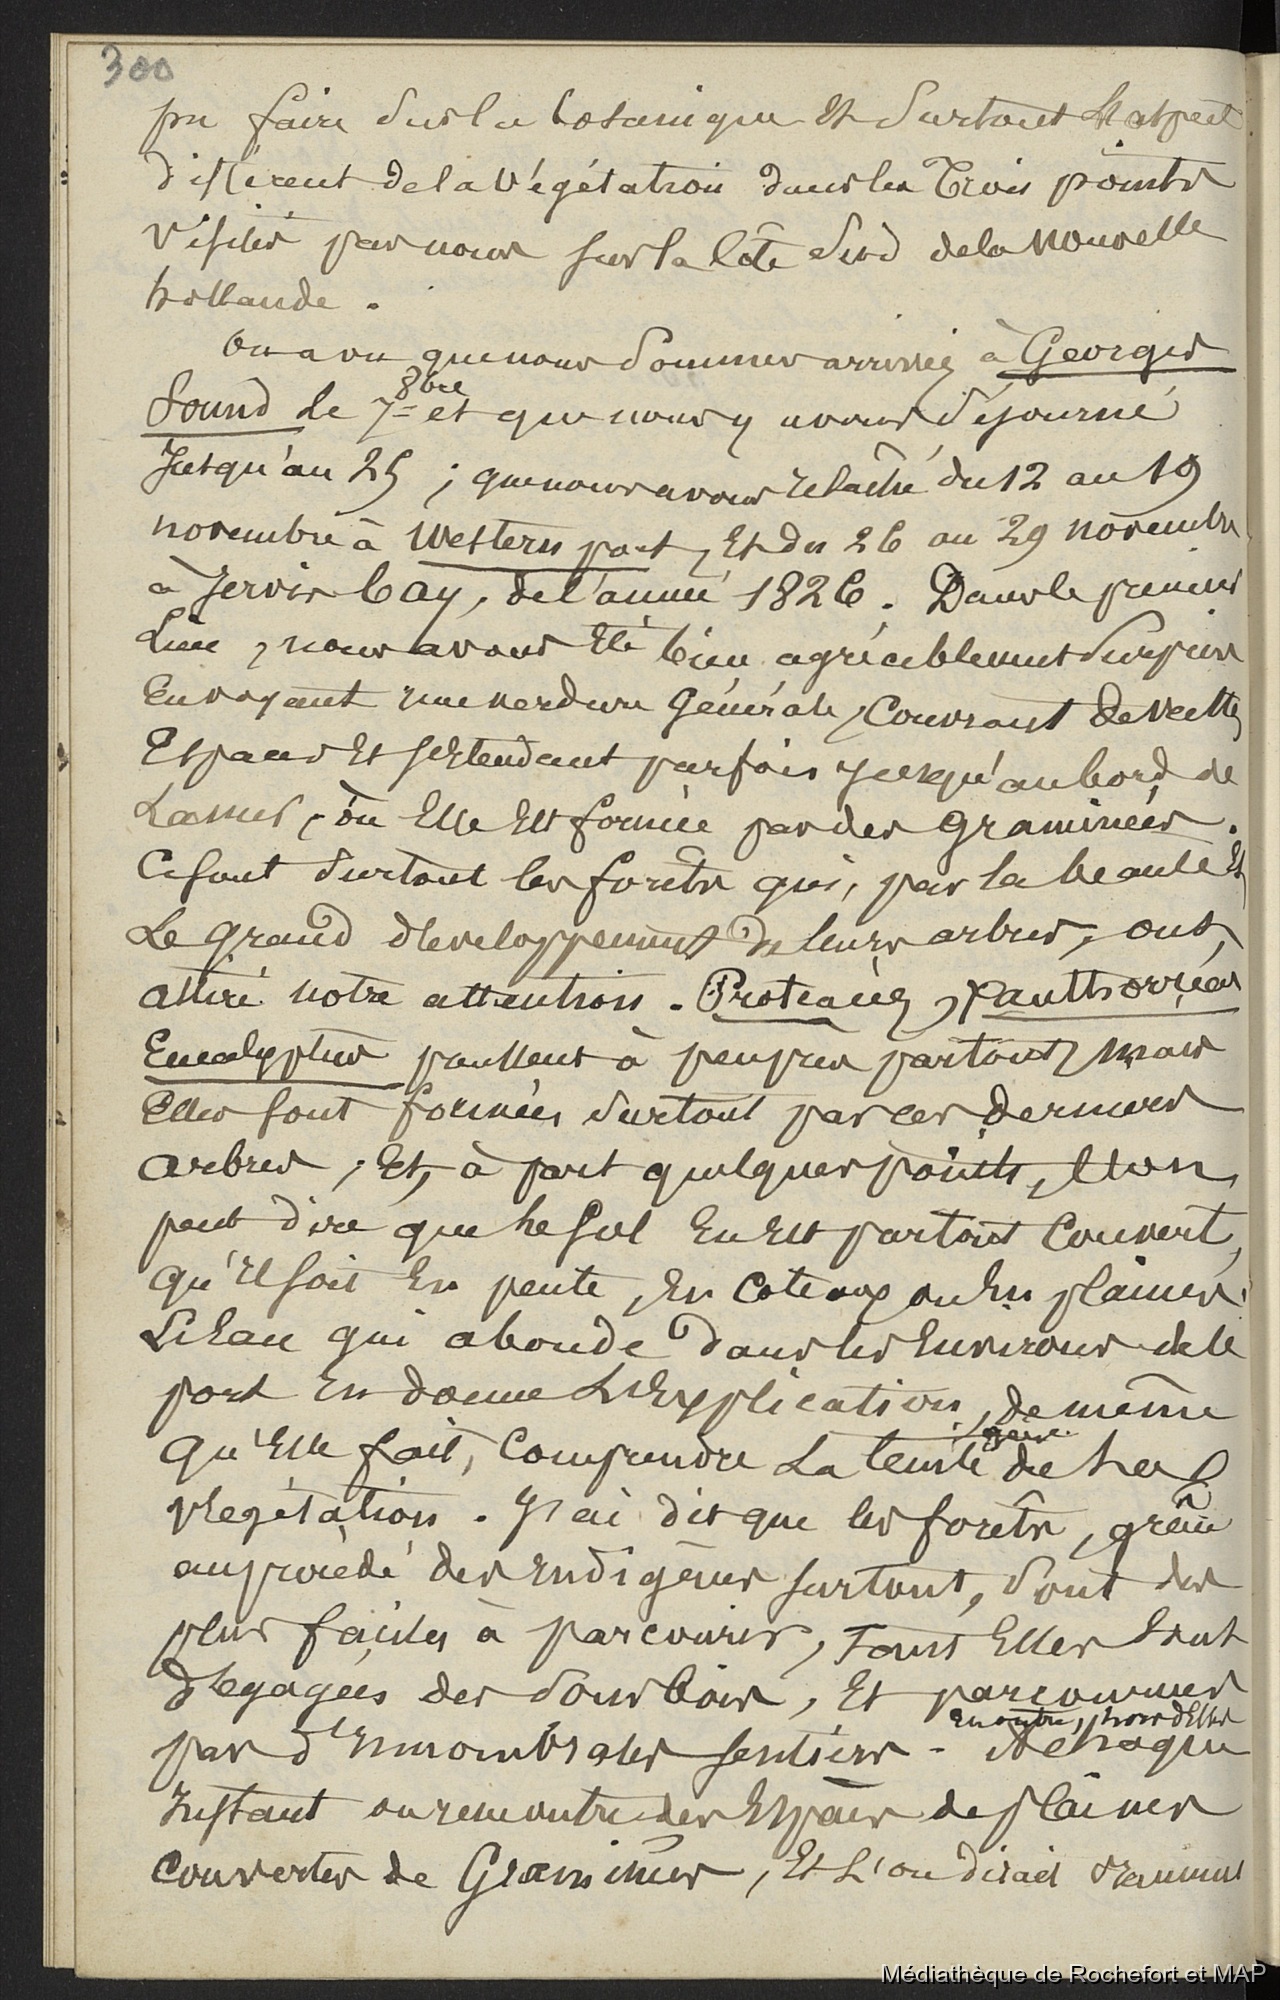 300
pu faire sur la botanique et surtout l'aspect
différent de la végétation dans les trois points
visités par nous sur la côte sud de la nouvelle
hollande.
On a vu que nous sommes arrivés à Georges
Sound le 7 8bre et que nous y avons séjourné
jusqu'au 25 ; que nous avons relâché du 12 au 19
novembre à Western port, et du 26 au 29 novembre
à Jervis bay, de l'année 1826. Dans le premier
lieu, nous avons été bien agréablement surpris
en voyant une verdure générale, couvrant de vastes
espaces et s'étendant parfois jusqu'au bord de
la mer, où elle est formée par des graminées.
Ce sont surtout les forêts qui, par la beauté et
le grand développement de leurs arbres, ont
attiré notre attention. Protéacées, Xanthorréas
Eucalyptus poussent à peu près partout, mais
elles sont formées surtout par ces derniers
arbres ; et, à part quelques points, l'on
peut dire que le sol en est partout couvert,
qu'il soit en pente, en coteaux ou en plaines.
L'eau qui abonde dans les environs de le
port en donne l'explication, de même
qu'elle fait comprendre la teinte de la
végétation. J'ai dit que les forêts, grâce
au procédé des indigènes surtout, sont des
plus faciles à parcourir, tant elles sont
dégagées des sous bois, et parcourues
en outre, hors d'elles
par d'innombrables sentiers - A chaque
instant on rencontre des espaces de plaines
couvertes de Graminées, et l'on dirait vraiment
Médiathèque de Rochefort et MAP